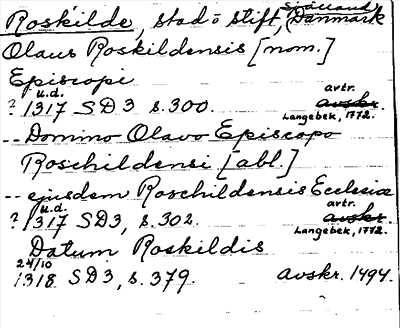 Roskilde, stad o stift, Själland, Danmark
Olaus Roskildensis [nom.]
Episcopi
u.d. avtr.
? 1317 SD3 s.300. avskr.
Langebek, 1772.
-- Domino Olavo Episcopo
Roschildensi [abl.]
-- ejusdem Roschildensis Ecclesiæ
u.d. avtr.
? 1317 SD3, s.302. avskr.
Langebek, 1772.
Datum Roskildis
24/10
1318 SD3, s.379. avskr. 1494.